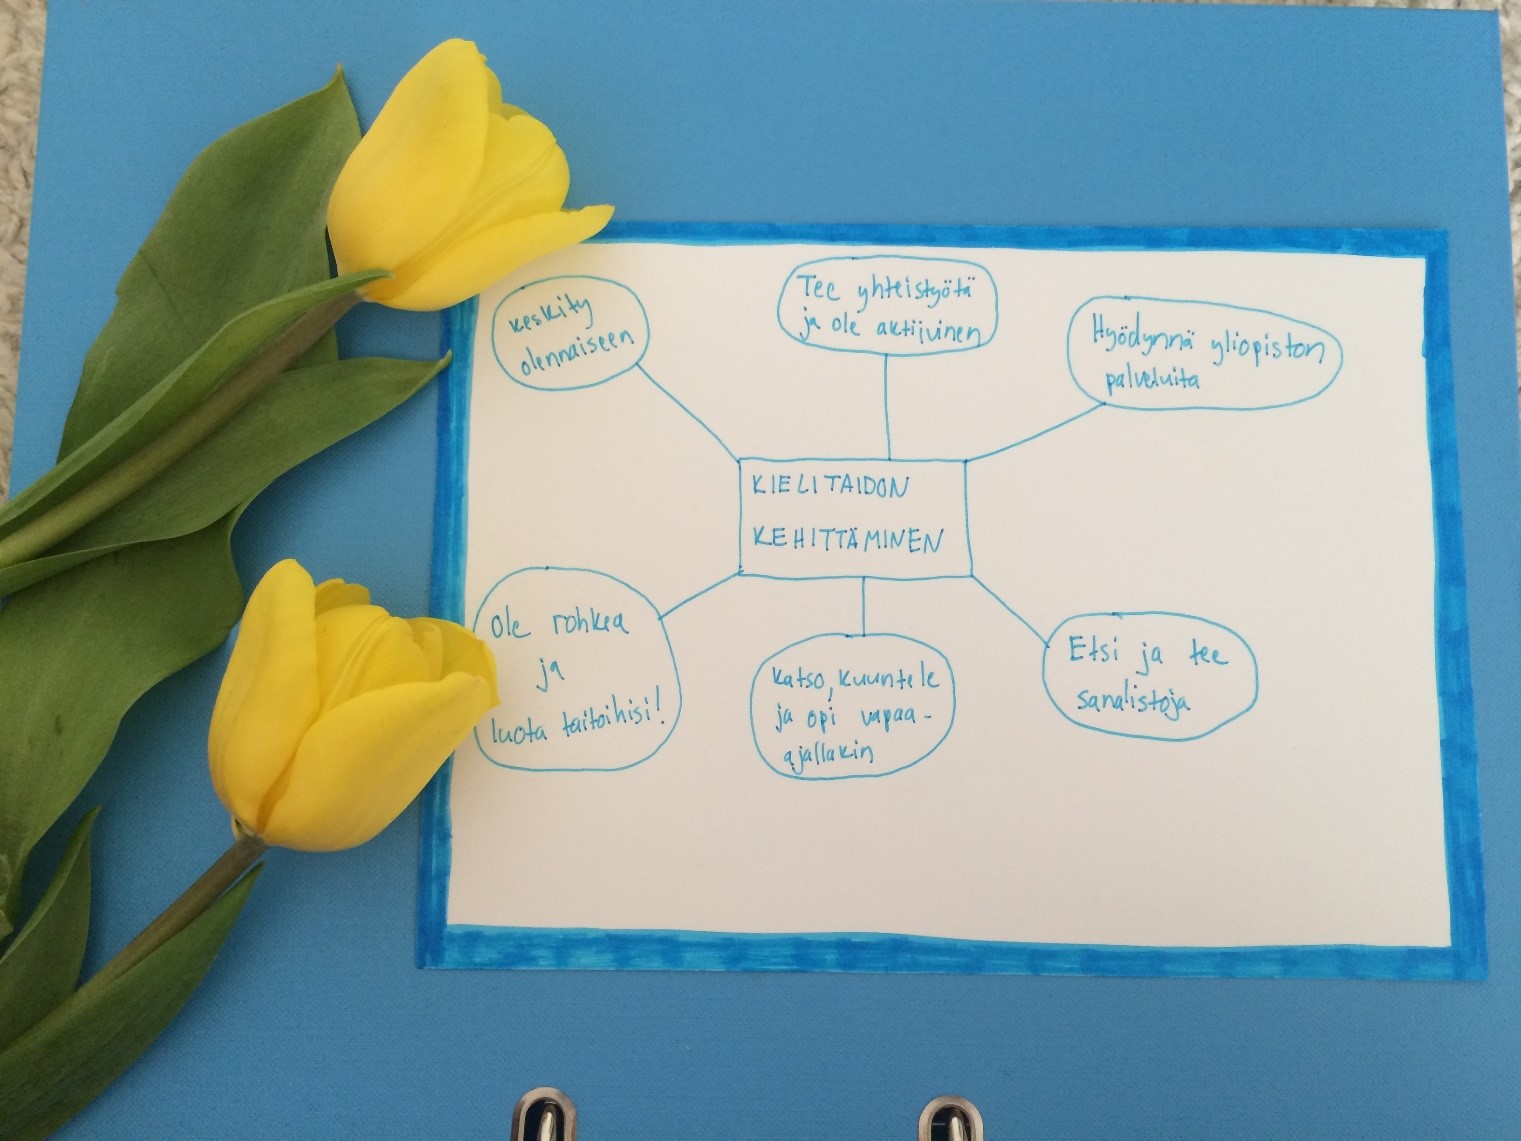 Keskity
olennaiseen
Tee yhteistyötä
ja ole aktiivinen
Hyödynnä yliopiston
palveluita
KIELITAIDON
KEHITTÄMINEN
Ole rohkea
ja
luota taitoihisi!
Katso, kuuntele
ja opi vapaa-
ajallakin
Etsi ja tee
sanalistoja